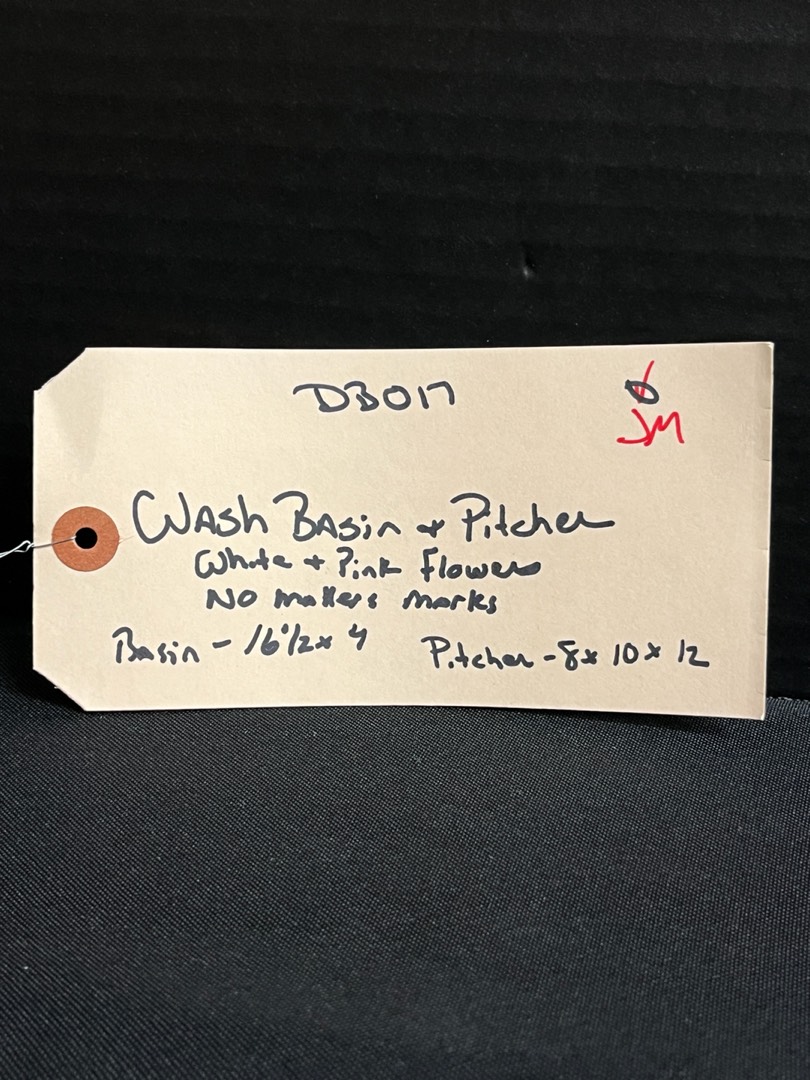 DB017
JM
Wash Basin + Pitcher
White + Pink Flowers
No makers marks
Basin - 16 1/2 x 4 Pitcher - 8 x 10 x 12